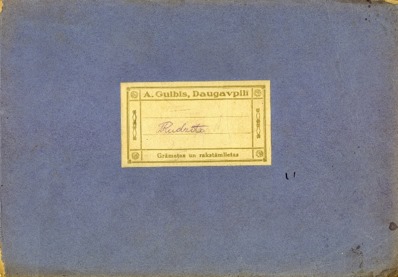 A. Gulbis, Daugavpilī
Grāmatas un rakstāmlietas